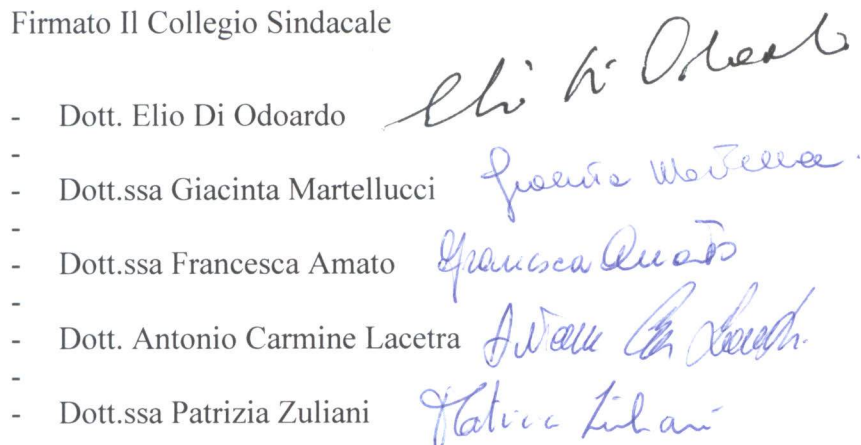 Firmato Il Collegio Sindacale
- Dott. Elio Di Odoardo Elio Di Odoardo
-
- Dott.ssa Giacinta Martellucci
-
- Dott.ssa Francesca Amato Francesca Amato
-
- Dott. Antonio Carmine Lacetra
-
- Dott.ssa Patrizia Zuliani Patrizia Zuliani